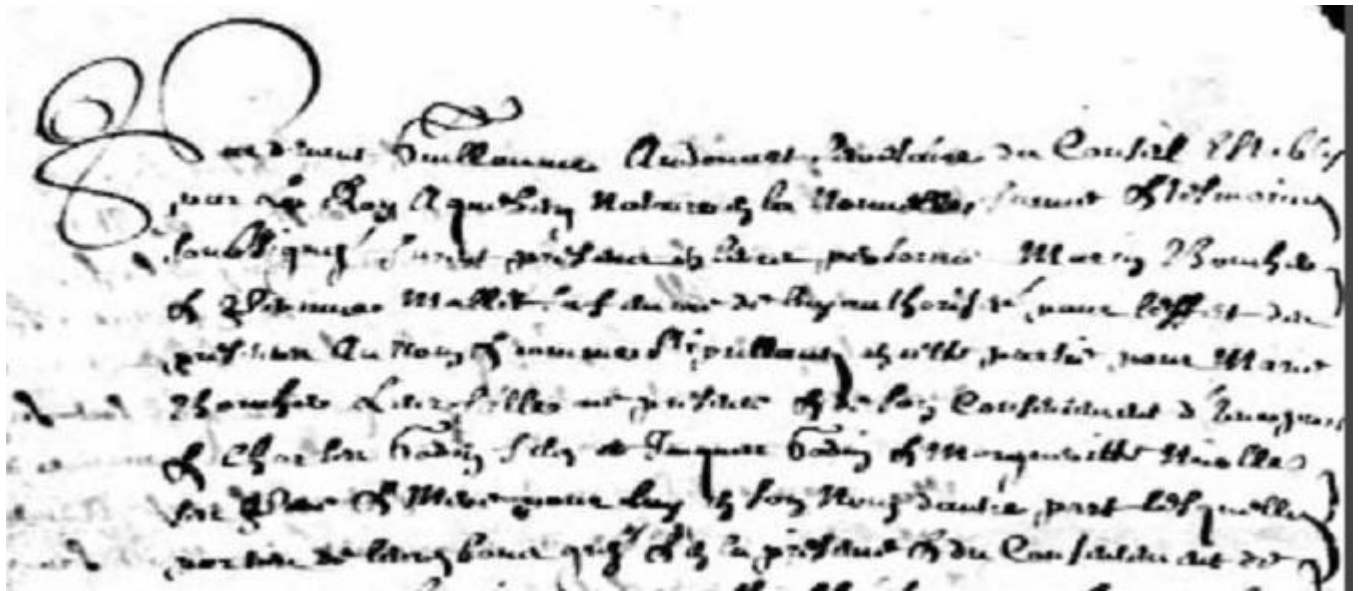 Par devant Guillaume Audouart Secretaire du Conseil Estably
par Le Roy A quebecq Notaire en la Nouvelle france & tesmoins
soubsignez furent présens en leurs personnes Marin Boucher
& Perinne Mallet sa femme de luy authorisée pour leffet des
présentes Au nom & comme stipullans en cette partie pour Marie
Boucher Leur fille a ce présente & de son Consentement d'une part
& Charles Godin fils de Jacques Godin & Margueritte Nieulle
ses Père & Mere pour luy & en son Nom dautre part lesquelles
parties de leurs bons grez & en la présence & du Consentement de